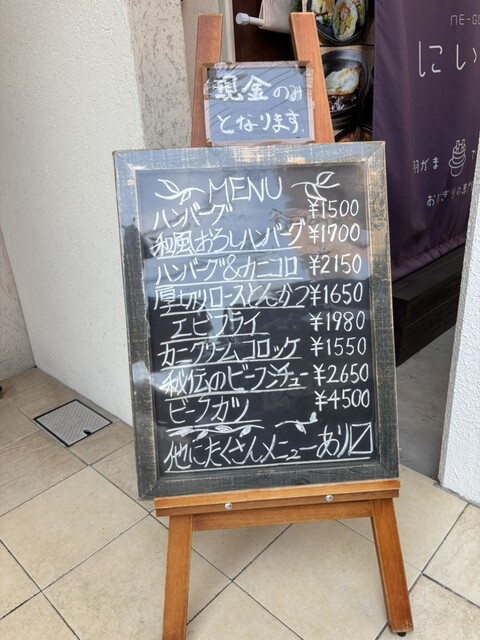 現金のみ
となります.
MENU
ハンバーグ ¥1500
和風おろしハンバーグ ¥1700
ハンバーグ&カニコロ ¥2150
厚切りロースとんかつ ¥1650
エビフライ ¥1980
カニクリームコロッケ ¥1550
秘伝のビーフシチュー ¥2650
ビーフカツ ¥4500
他にたくさんメニューあり〼
NE-G
にい
羽がま
おにぎりの